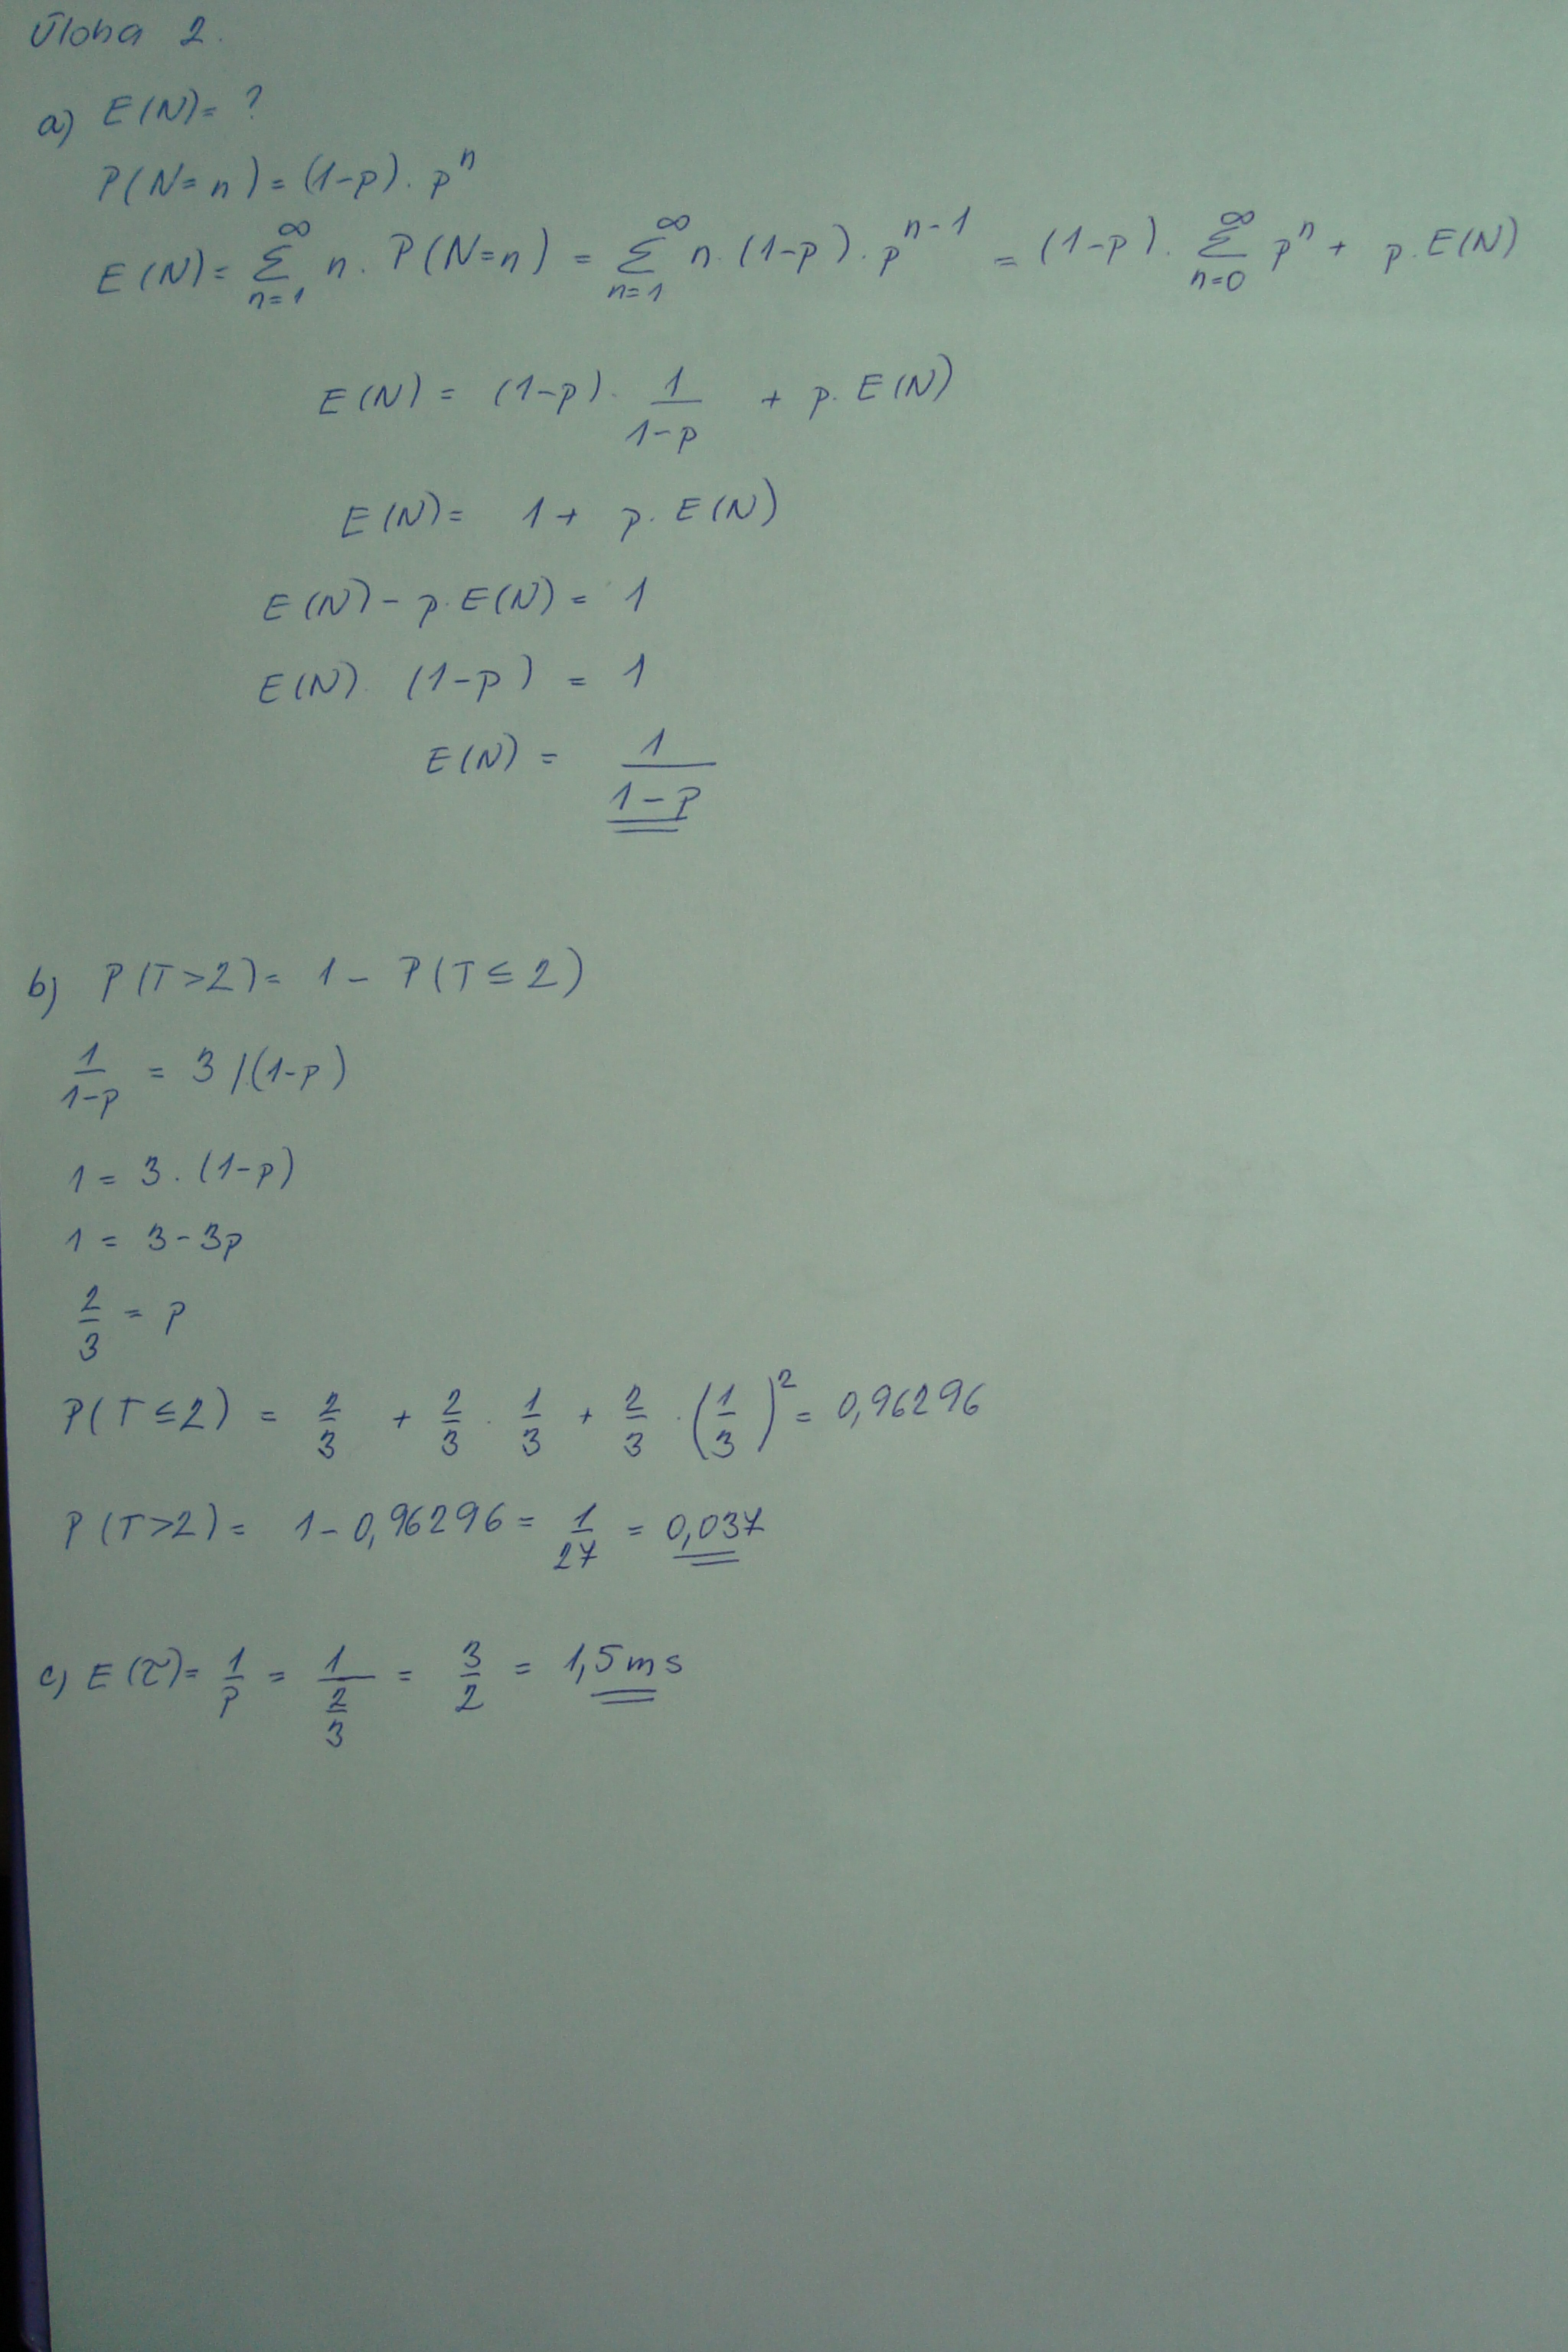 Úloha 2.
a) E(N)= ?
P(N=n)=(1-p).p^n
E(N)= ∞Σn=1 n. P(N=n) = ∞Σn=1 n.(1-p).p^{n-1} = (1-p). ∞Σn=0 p^n + p.E(N)
E(N) = (1-p). 1/(1-p) + p.E(N)
E(N)= 1+ p.E(N)
E(N)- p.E(N) = 1
E(N). (1-p) = 1
E(N) = 1/(1-p)
b) P(T>2)= 1 - P(T≤2)
1/(1-p) = 3 /.(1-p)
1 = 3.(1-p)
1 = 3-3p
2/3 = p
P(T≤2) = 2/3 + 2/3 . 1/3 + 2/3 . (1/3)^2 = 0,96296
P(T>2)= 1-0,96296 = 1/27 = 0,037
c) E(τ)= 1/p = 1/(2/3) = 3/2 = 1,5ms